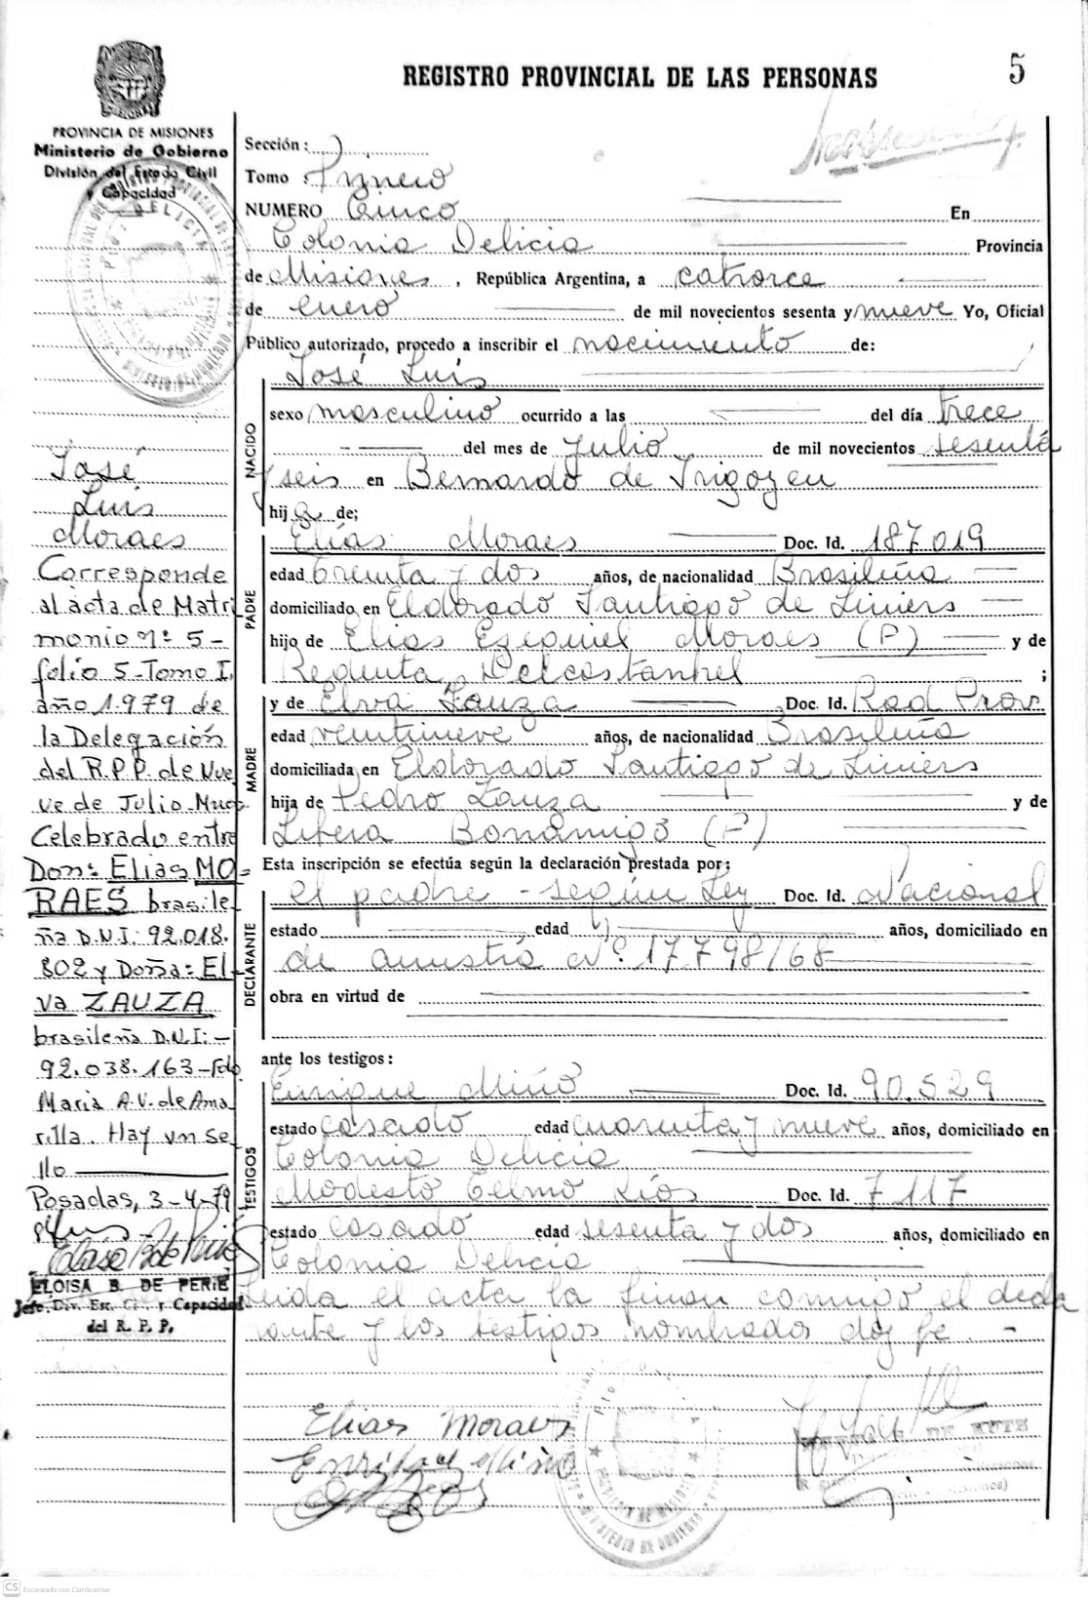 REGISTRO PROVINCIAL DE LAS PERSONAS
5
PROVINCIA DE MISIONES
Ministerio de Gobierno
División del Estado Civil
y Capacidad
Sección:
Tomo: Primero
NUMERO Cinco En
Colonia Delicia Provincia
de Misiones, República Argentina, a catorce
de enero de mil novecientos sesenta y nueve Yo, Oficial
Público autorizado, procedo a inscribir el nacimiento de:
José Luis
NACIDO
sexo masculino ocurrido a las del día trece
del mes de Julio de mil novecientos sesenta
y seis en Bernardo de Irigoyen
hijo de;
PADRE
Elías Moraes Doc. Id. 187.019
edad treinta y dos años, de nacionalidad Brasileña
domiciliado en Eldorado Santiago de Liniers
hijo de Elias Ezequiel Moraes (P) y de
Redenta ;
MADRE
y de Elva Zauza Doc. Id. Rad Prov.
edad veintinueve años, de nacionalidad Brasileña
domiciliada en Eldorado Santiago de Liniers
hija de Pedro Zauza y de
Libera Bonamigo (P)
DECLARANTE
Esta inscripción se efectúa según la declaración prestada por:
el padre - según Ley Doc. Id. Nacional
estado edad años, domiciliado en
de amnistía Nº 17.798/68
obra en virtud de
ante los testigos:
TESTIGOS
Enrique Miño Doc. Id. 90.529
estado casado edad cuarenta y nueve años, domiciliado en
Colonia Delicia
Modesto Telmo Ríos Doc. Id. 7117
estado casado edad sesenta y dos años, domiciliado en
Colonia Delicia
Leida el acta la firman comigo el decla
rante y los testigos nombrados doy fe. -
Elias Moraes
José
Luis
Moraes
Corresponde
al acta de Matri
monio Nº 5 -
folio 5 - Tomo I,
año 1.979 de
la Delegación
del R.P.P. de Nue
ve de Julio - Mnes.
Celebrado entre
Don: Elias MO=
RAES brasile
ña D.N.I. 92.018.
802 y Doña: El
va ZAUZA
brasileña D.N.I: -
92.038.163 - Fdo.
Maria A.V. de Ama
rilla. Hay un se
llo
Posadas, 3-4-79
ELOISA B. DE PERIE
Jefe Div. Est. Civ. y Capacidad
del R. P. P.
CS Escaneado con CamScanner